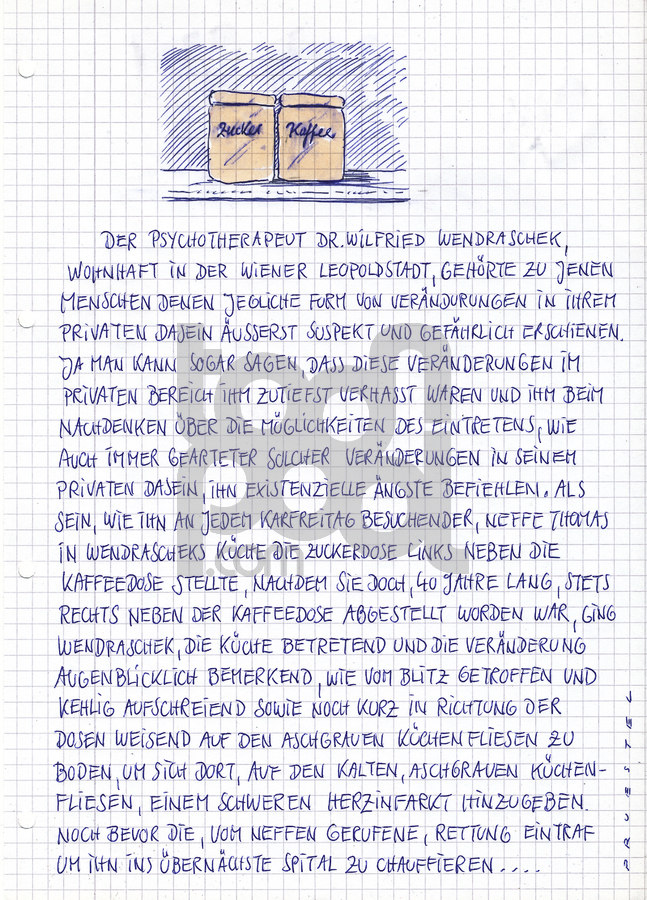 Zucker Kaffee
DER PSYCHOTHERAPEUT DR. WILFRIED WENDRASCHEK,
WOHNHAFT IN DER WIENER LEOPOLDSTADT, GEHÖRTE ZU JENEN
MENSCHEN DENEN JEGLICHE FORM VON VERÄNDURUNGEN IN IHREM
PRIVATEN DASEIN ÄUSSERST SUSPEKT UND GEFÄHRLICH ERSCHIENEN.
JA MAN KANN SOGAR SAGEN, DASS DIESE VERÄNDERUNGEN IM
PRIVATEN BEREICH IHM ZUTIEFST VERHASST WAREN UND IHM BEIM
NACHDENKEN ÜBER DIE MÖGLICHKEITEN DES EINTRETENS, WIE
AUCH IMMER GEARTETER SOLCHER VERÄNDERUNGEN IN SEINEM
PRIVATEN DASEIN, IHN EXISTENZIELLE ÄNGSTE BEFIEHLEN. ALS
SEIN, WIE IHN AN JEDEM KARFREITAG BESUCHENDER, NEFFE THOMAS
IN WENDRASCHEKS KÜCHE DIE ZUCKERDOSE LINKS NEBEN DIE
KAFFEEDOSE STELLTE, NACHDEM SIE DOCH, 40 JAHRE LANG, STETS
RECHTS NEBEN DER KAFFEEDOSE ABGESTELLT WORDEN WAR, GING
WENDRASCHEK, DIE KÜCHE BETRETEND UND DIE VERÄNDERUNG
AUGENBLICKLICH BEMERKEND, WIE VOM BLITZ GETROFFEN UND
KEHLIG AUFSCHREIEND SOWIE NOCH KURZ IN RICHTUNG DER
DOSEN WEISEND AUF DEN ASCHGRAUEN KÜCHENFLIESEN ZU
BODEN, UM SICH DORT, AUF DEN KALTEN, ASCHGRAUEN KÜCHEN-
FLIESEN, EINEM SCHWEREN HERZINFARKT HINZUGEBEN.
NOCH BEVOR DIE, VOM NEFFEN GERUFENE, RETTUNG EINTRAF
UM IHN INS ÜBERNÄCHSTE SPITAL ZU CHAUFFIEREN....
toonpool
.com